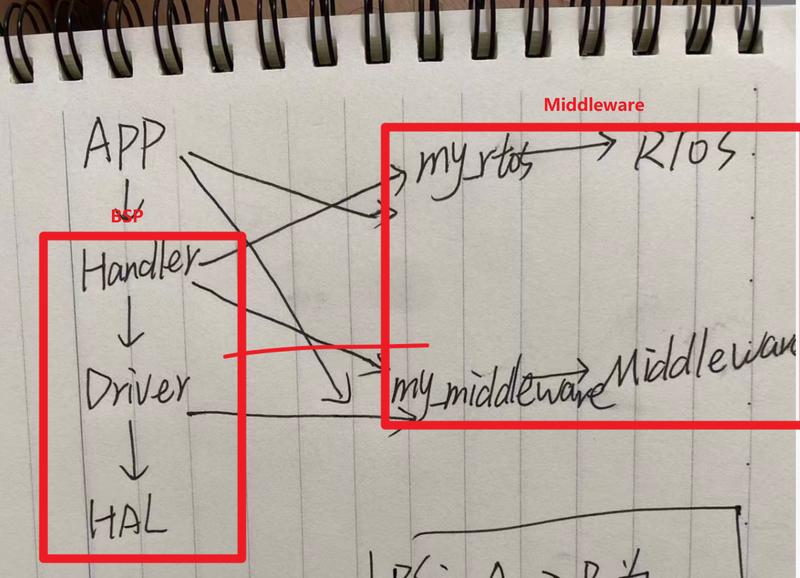 Middleware
APP
my_rtos
RTOS
BSP
Handler
Driver
my_middleware
Middleware
HAL